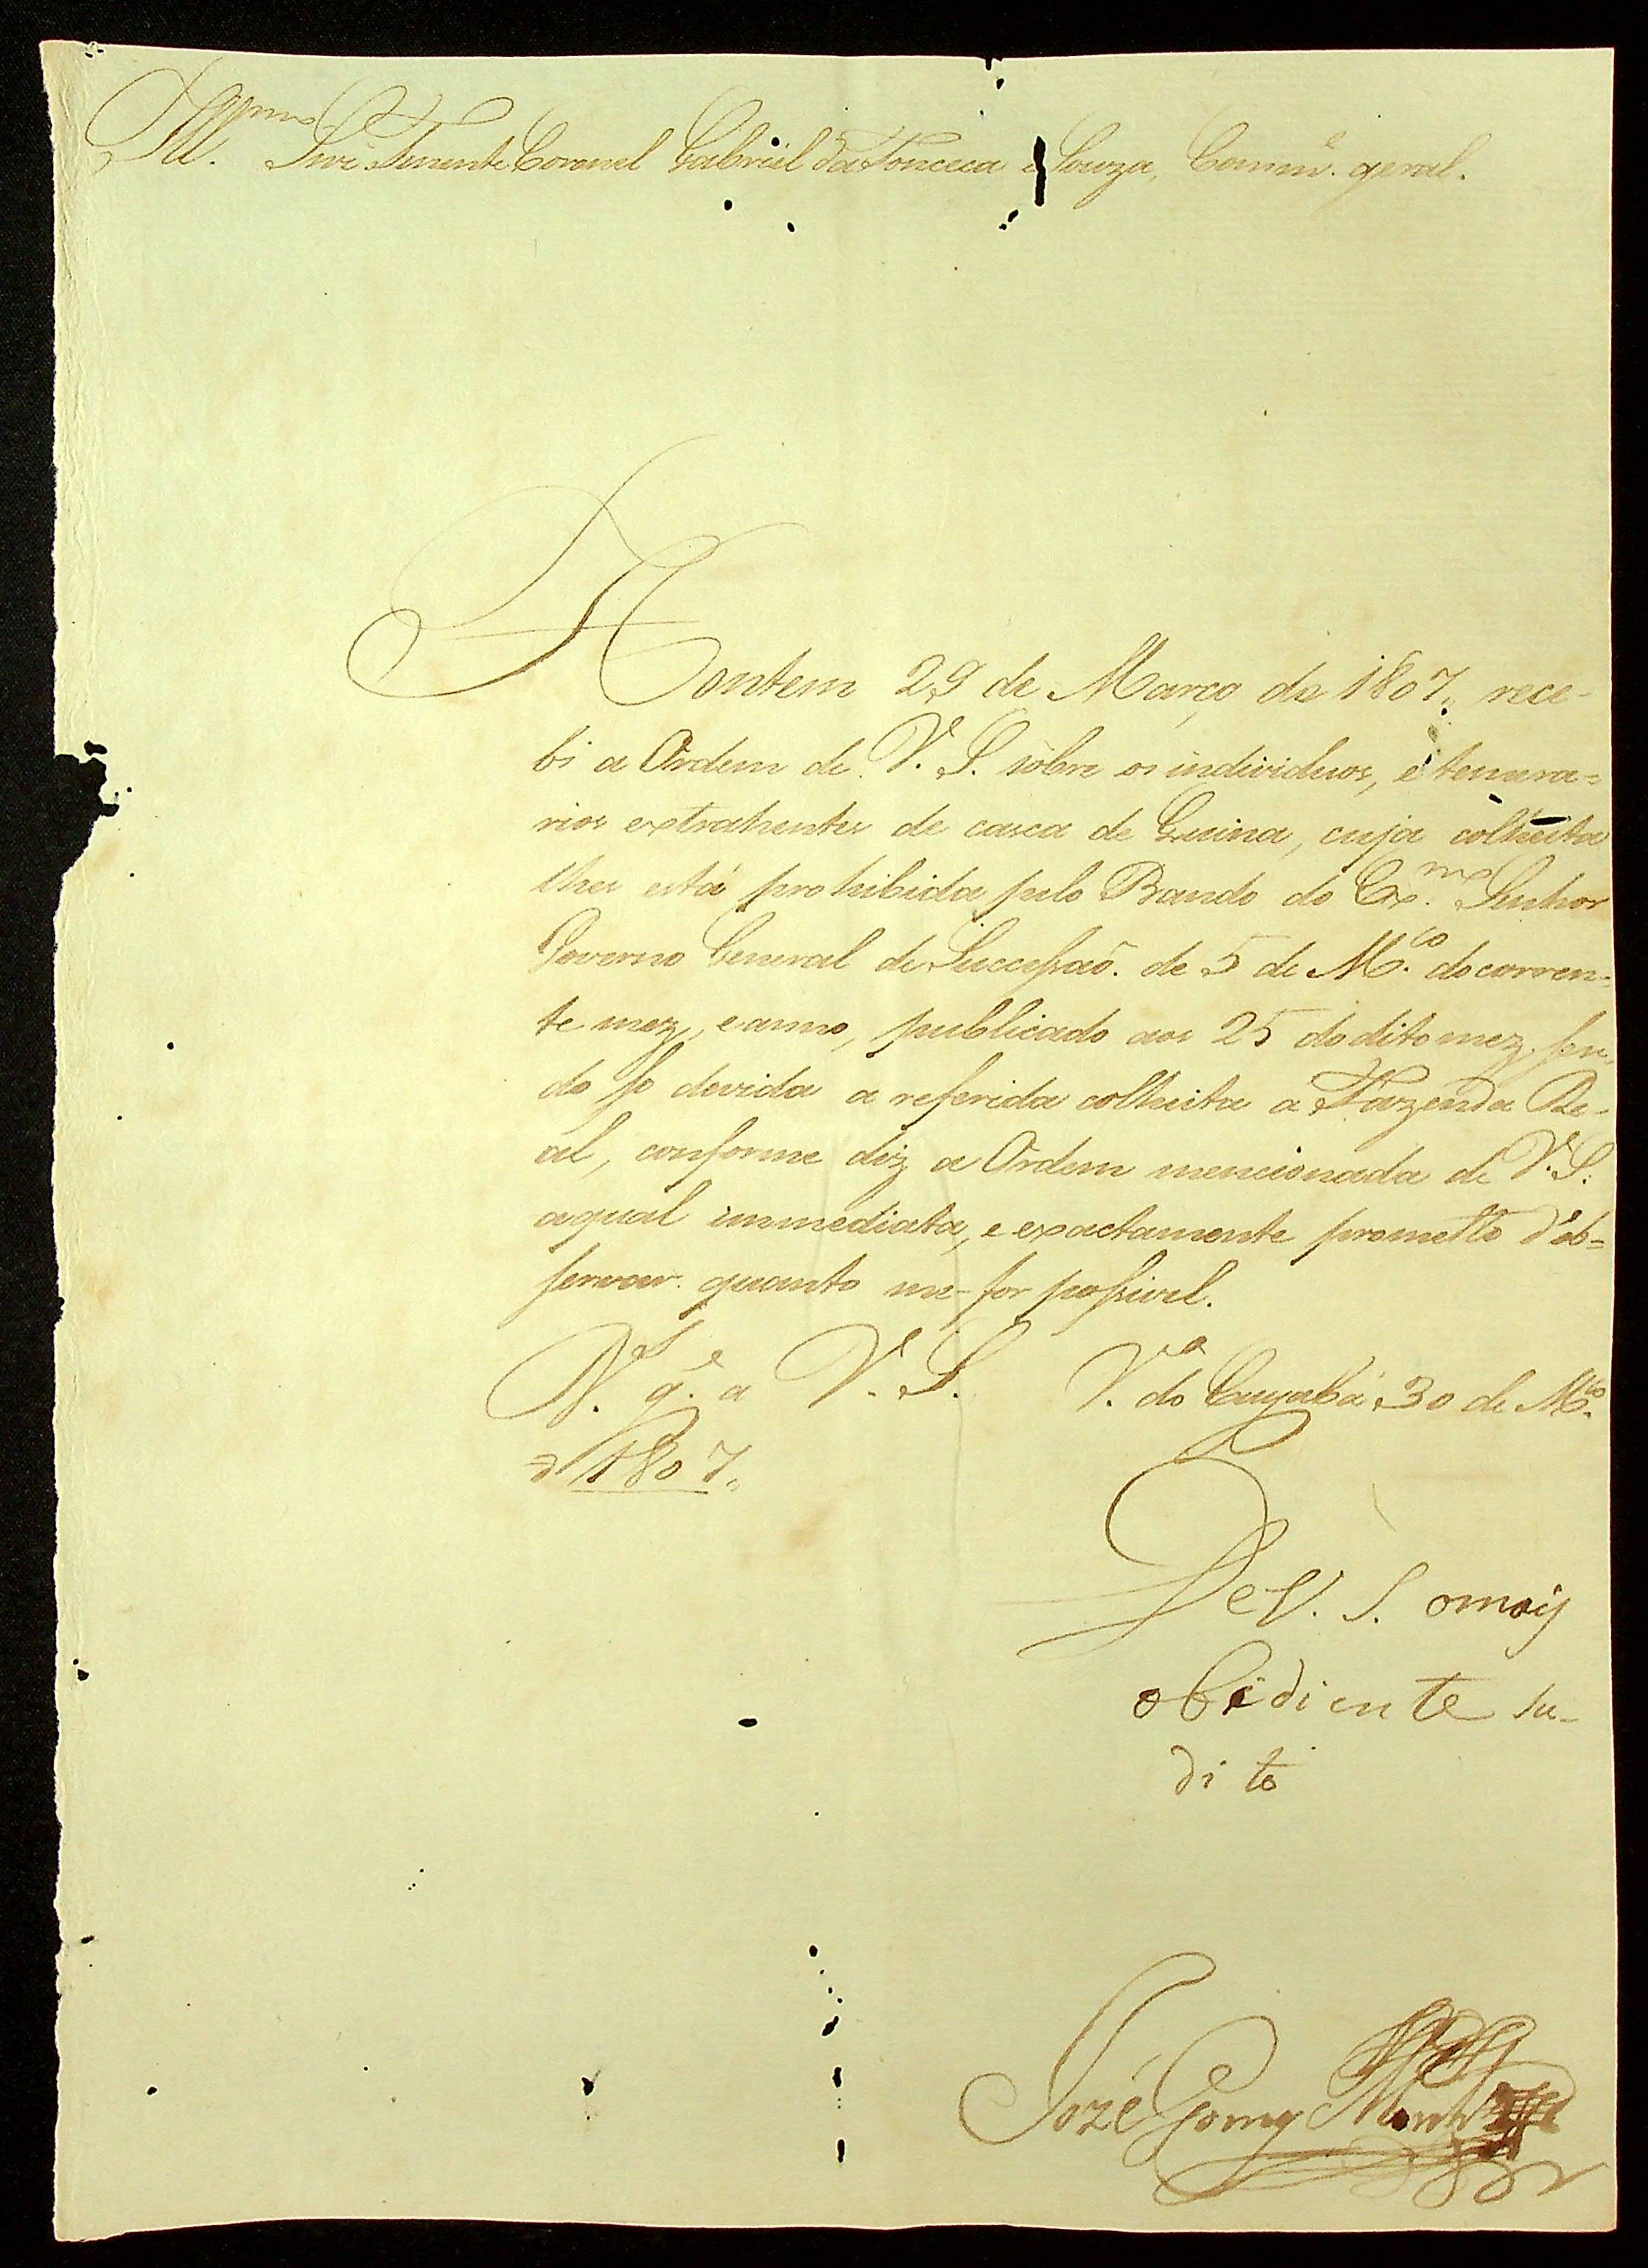 Ill.mo Snr. Tenente Coronel Gabriel da Fonceca e Souza, Comm.e geral.
Hontem 29 de Março de 1807, rece-
bi a Ordem de V. S. sobre os individuos, e temera-
rios extrahentes de casca de Quina, cuja colheita
lhes está prohibida pelo Bando do Ex.mo Senhor
Governo General de Successaõ de 5 de M.ço do corren-
te mez, e anno, publicado aos 25 do dito mez, sen-
do so devida a referida colheita a Fazenda Re-
al, conforme diz a Ordem mencionada de V. S.
a qual immediata, e exactamente prometto d'ob-
servar quanto me-for possivel.
N. S. g.e a V. S. V.a do Cuyabá 30 de M.ço
d 1807.
De V. S. o mais
obidiente su-
dito
Jozé Gomes